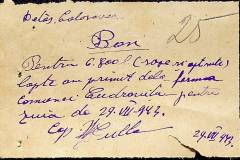 Detaș. Calarași
25
Bon
Pentru 6.800 l (șase mi optsute)
lapte am primit dela ferma
comunei Cudrovita pentru
ziua de 29.VII-943.
Cap
29.VII 943.